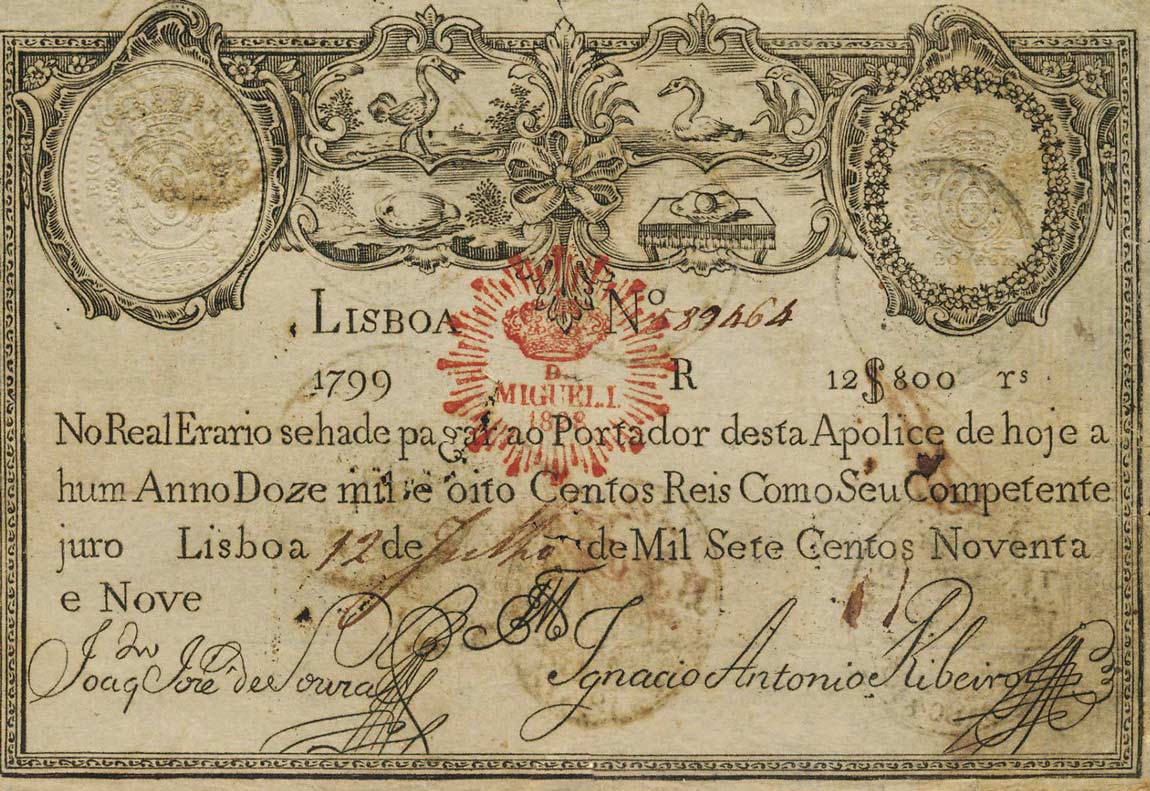 LISBOA Nº 89464
1799 R 12$800 rs
D.
MIGUEL I.
1828
No Real Erario se ha de pagar ao Portador desta Apolice de hoje a
hum Anno Doze mil e oito Centos Reis Como Seu Competente
juro Lisboa 12 de Julho de Mil Sete Centos Noventa
e Nove
Ignacio Antonio Ribeiro